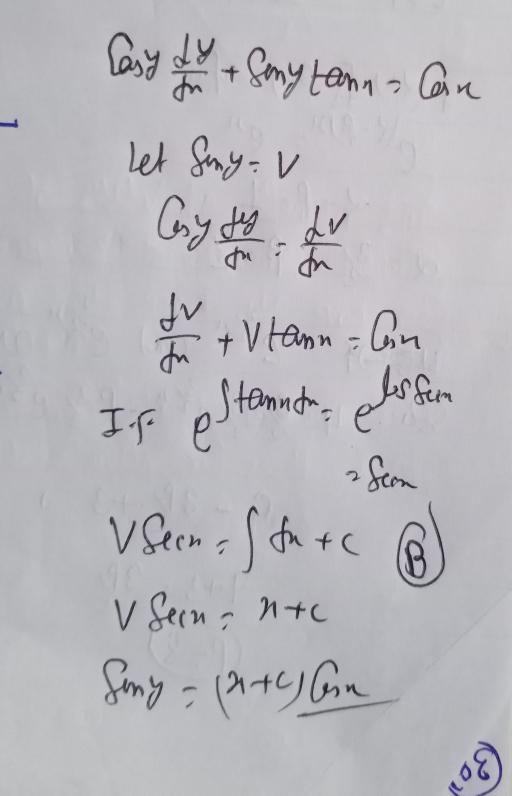 Cosy dy/dx + Siny tanx = Cosx
Let Siny = V
Cosy dy/dx = dv/dx
dv/dx + V tanx = Cosx
I.F. e^∫tanxdx = e^log Secx
= Secx
V Secx = ∫ dx + c (B)
V Secx = x + c
Siny = (x+c) Cosx